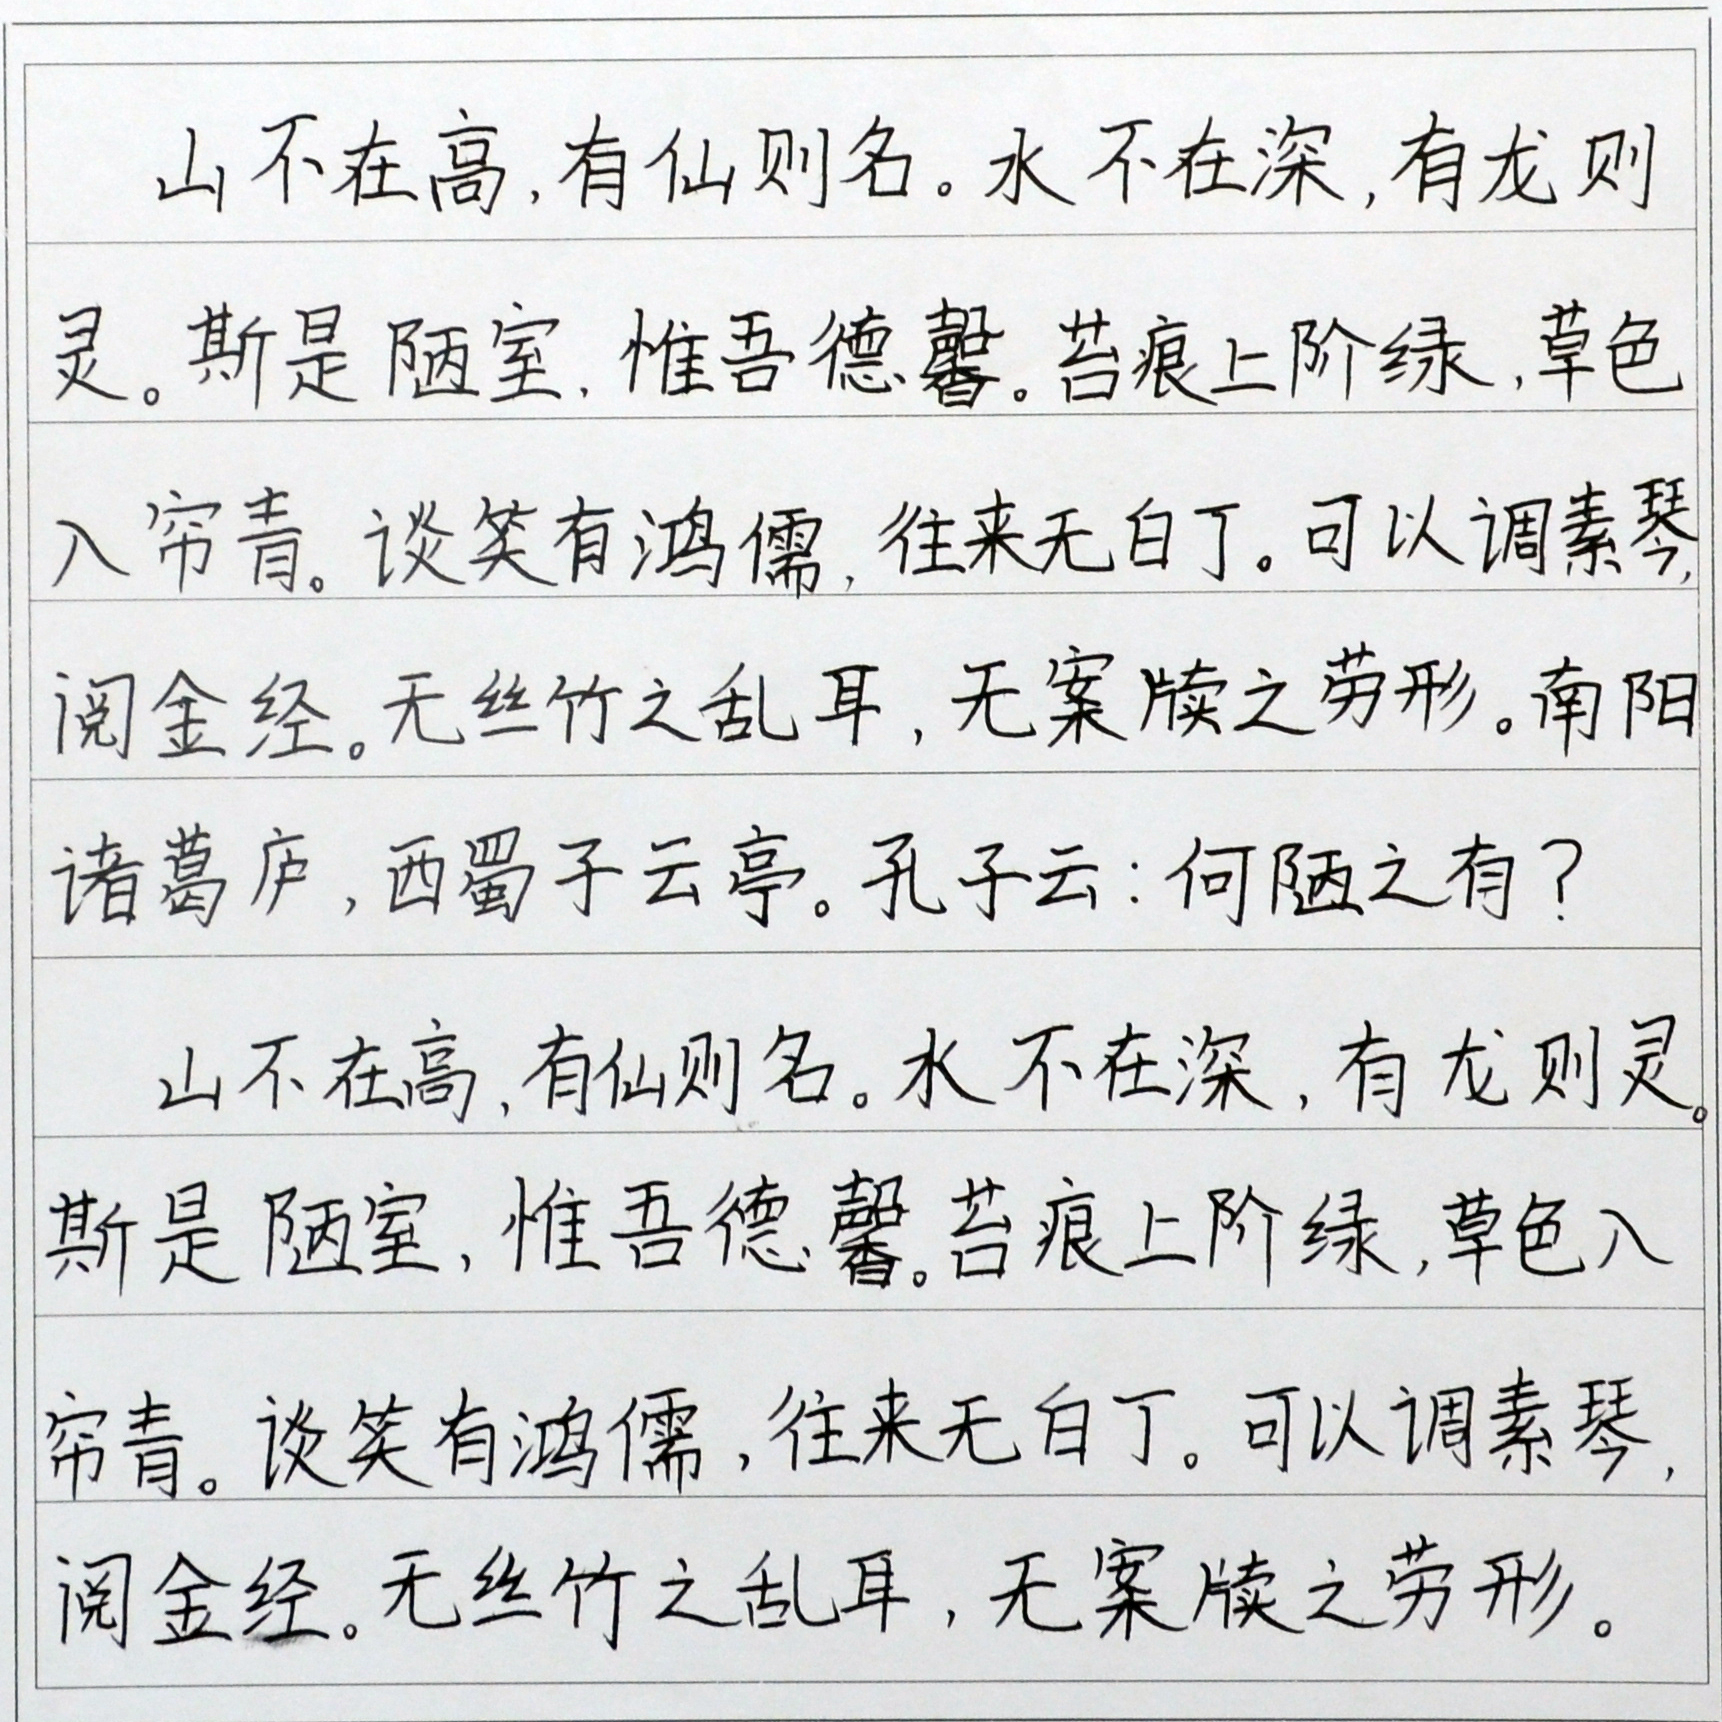 山不在高,有仙则名。水不在深,有龙则
灵。斯是陋室,惟吾德馨。苔痕上阶绿,草色
入帘青。谈笑有鸿儒,往来无白丁。可以调素琴,
阅金经。无丝竹之乱耳,无案牍之劳形。南阳
诸葛庐,西蜀子云亭。孔子云:何陋之有?
山不在高,有仙则名。水不在深,有龙则灵。
斯是陋室,惟吾德馨。苔痕上阶绿,草色入
帘青。谈笑有鸿儒,往来无白丁。可以调素琴,
阅金经。无丝竹之乱耳,无案牍之劳形。